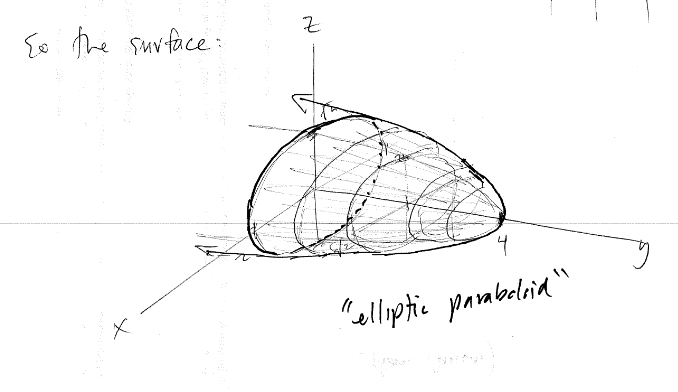 So the surface:
z
4
y
x
"elliptic paraboloid"